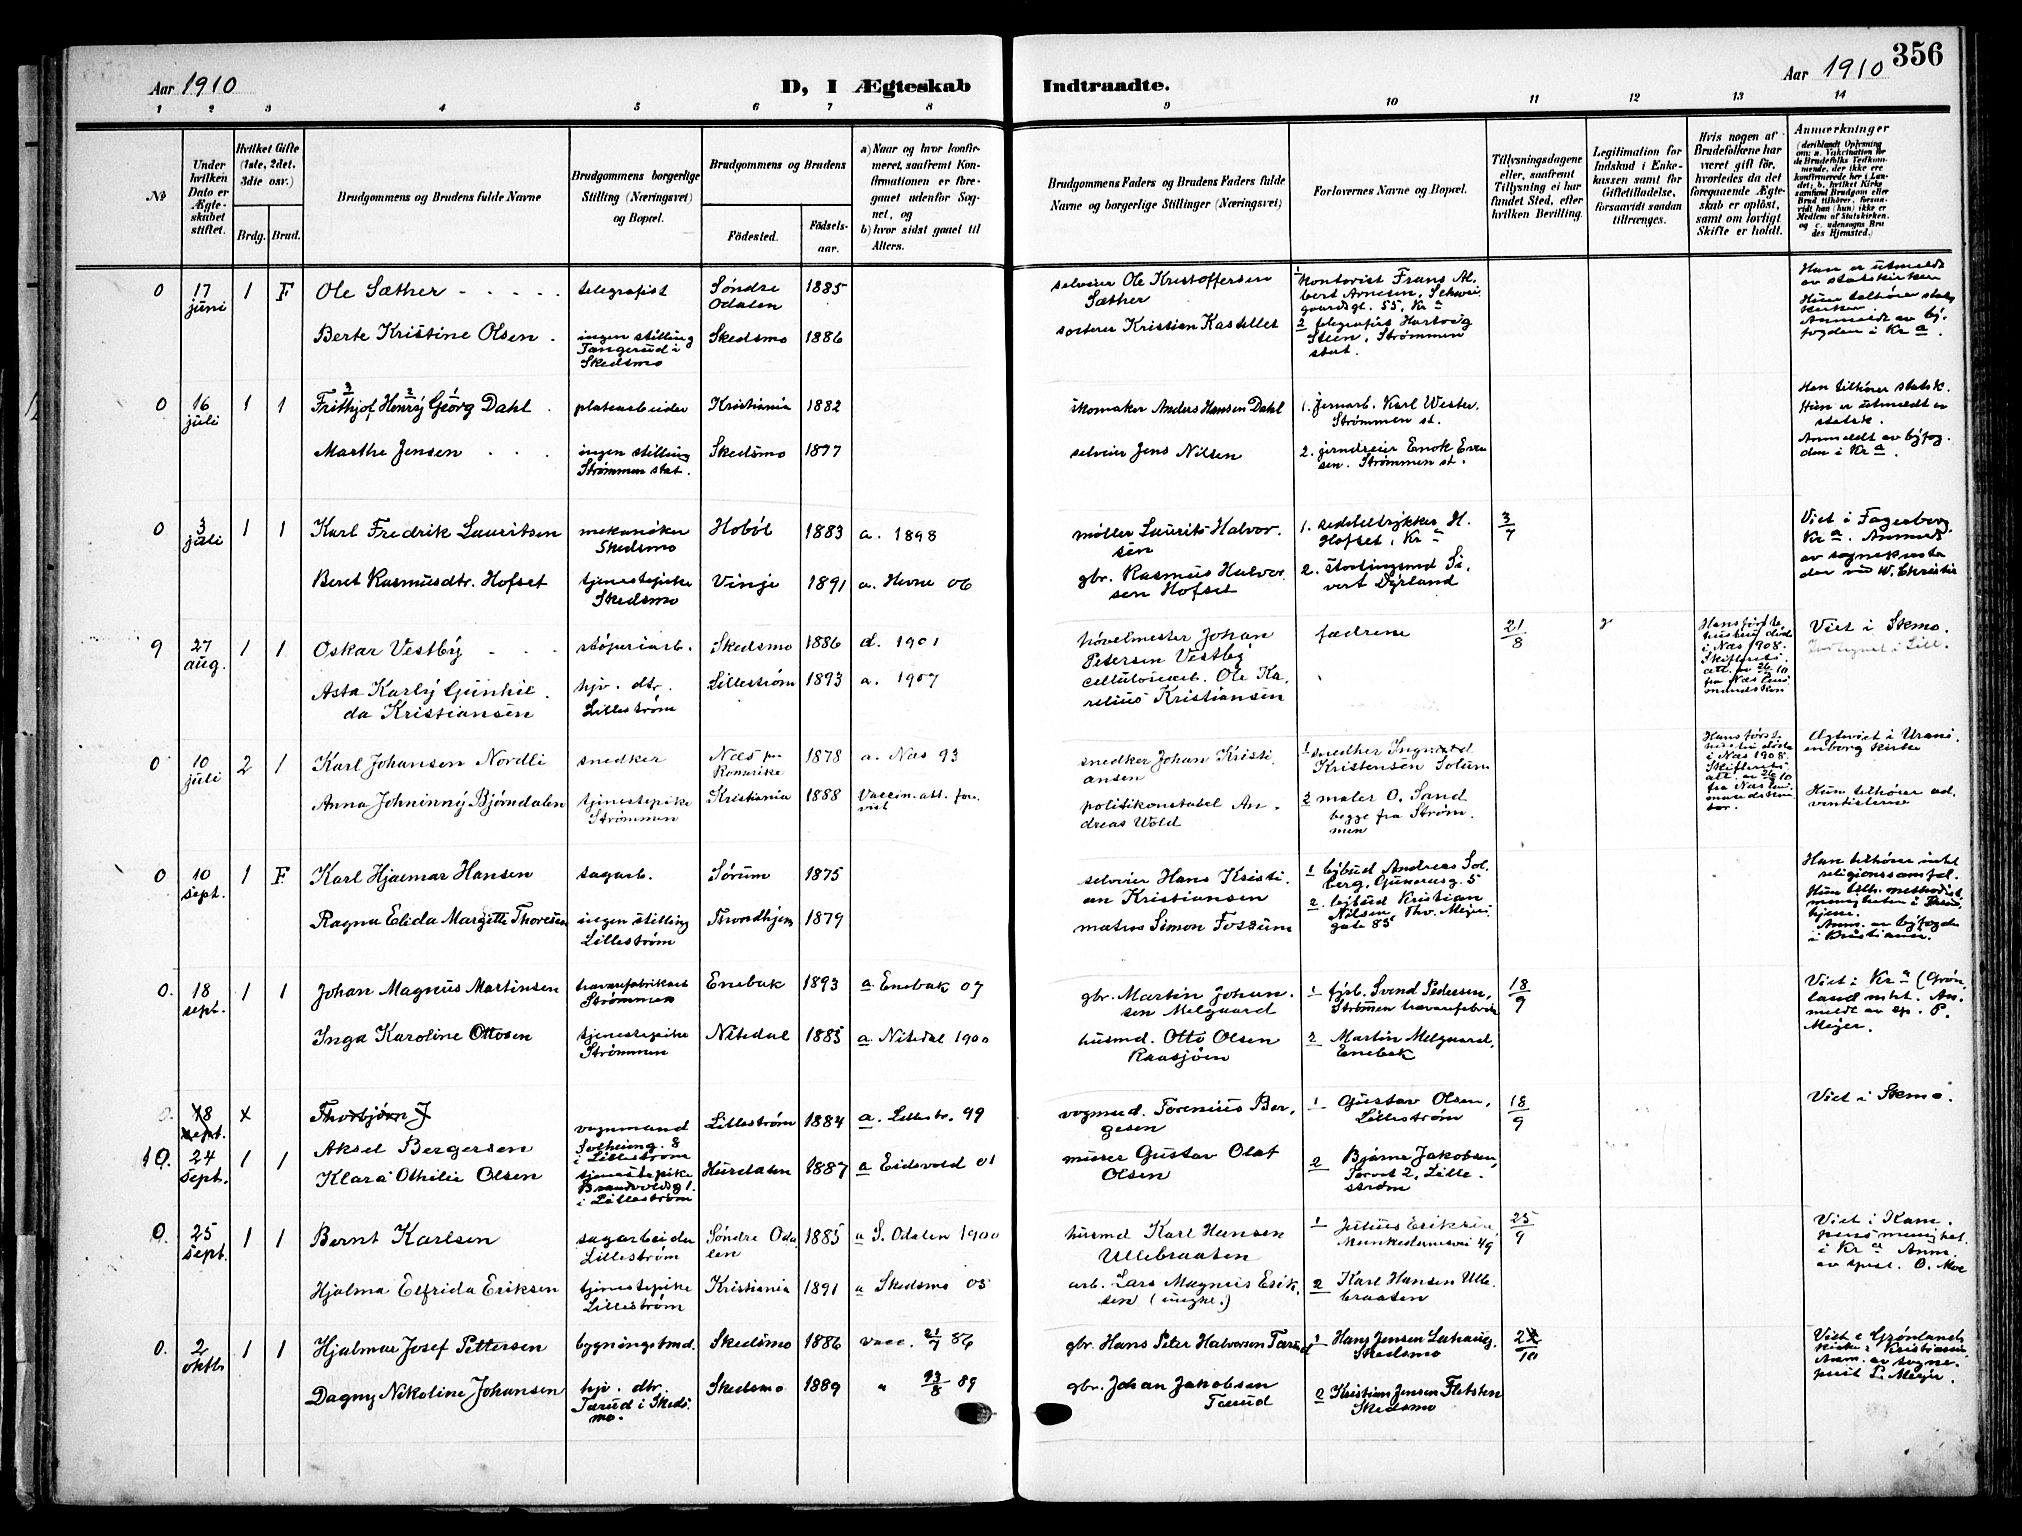 356
Aar 1910
D, I Ægteskab
Indtraadte.
Aar 1910
1 2 3 4 5 6 7 8 9 10 11 12 13 14
No
Under hvilken Dato er Ægteskabet stiftet.
Hvilket Gifte (1ste, 2det, 3die osv.)
Brdg. Brud.
Brudgommens og Brudens fulde Navne
Brudgommens borgerlige Stilling (Næringsvei) og Bopæl.
Brudgommens og Brudens
Födested.
Födselsaar.
a) Naar og hvor konfirmeret, saafremt Konfirmationen er foregaaet udenfor Sognet, og
b) hvor sidst gaaet til Alters.
Brudgommens Faders og Brudens Faders fulde Navne og borgerlige Stillinger (Næringsvei)
Forlovernes Navne og Bopæl.
Tillysningsdagene eller, saafremt Tillysning ei har fundet Sted, efter hvilken Bevilling.
Legitimation for Indskud i Enkekassen samt for Giftetilladelse, forsaavidt saadan tiltrænges.
Hvis nogen af Brudefolkene har været gift för, hvorledes da det foregaaende Ægteskab er oplöst, samt om lovligt Skifte er holdt.
Anmærkninger
(deriblandt Oplysning om: a. Vakcination for de Brudefolks Vedkommende, der ikke ere konfirmerede her i Landet; b. hvilket Kirkesamfund Brudgom eller Brud tilhörer, forsaavidt han (hun) ikke er Medlem af Statskirken, og c. udensogns Brudes Hjemsted.)
0 17 juni 1 F Ole Sæther telegrafist Søndre Odalen 1885
selveier Ole Kristoffersen Sæther
1 kontorist Frans Albert Arnesen, Schweigaardsgt. 55, Kr a
Han er utmeldt av statskirken
Hun tilhører statskirken
Anmeldt av byfogden i Kr a.
Berte Kristine Olsen ingen stilling Tangerud i Skedsmo Skedsmo 1886
sorterer Kristian Kastellet
2 telegrafist Hartvig Steen, Strømmen stat.
0 16 juli 1 1 Frithjof Henry Georg Dahl platearbeider Kristiania 1882
skomaker Anders Hansen Dahl
1. jernarb. Karl Wester, Strømmen st.
Han tilhører statsk.
Hun er utmeldt av statsk.
Anmeldt av byfogden i Kr a.
Marthe Jensen ingen stilling Strømmen stat. Skedsmo 1877
selveier Jens Nilsen
2. jerndreier Enok Evensen. Strømmen st.
0 3 juli 1 1 Karl Fredrik Lauritsen mekaniker Skedsmo Hobøl 1883 a. 1898
møller Laurits Halvorsen
1. H. Hofset, Kr a
3/7
Viet i Fagerborg, Kr a.
Beret Rasmusdtr. Hofset tjenestepike Skedsmo Vinje 1891 a. Hevne 06
gbr. Rasmus Halvorsen Hofset
2. stortingsmd Sivert Dyrland
9 27 aug. 1 1 Oskar Vestby støperiarb. Skedsmo 1886 d. 1901
høvelmester Johan Petersen Vestby
fædrene
21/8
Viet i Skmo.
Asta Karly Gunhilda Kristiansen hjv. dtr. Lillestrøm Lillestrøm 1893 a. 1907
cellulosearb. Ole Karelius Kristiansen
0 10 juli 2 1 Karl Johansen Nordli snedker Næs på Romerike 1878 a. Næs 93
snedker Johan Kristiansen
1 snedker Ingvald Kristensen Solum
Hans første hustru døde i Næs 1908.
Ægteviet i Uranienborg kirke
Anna Johninny Bjørndalen tjenestepike Strømmen Kristiania 1888 Vaccin. att. forevist
politikonstabel Andreas Wold
2 maler O. Sand begge fra Strømmen
Hun tilhører adventisterne
0 10 sept. 1 F Karl Hjalmar Hansen sagarb. Sørum 1875
selveier Hans Kristian Kristiansen
1 bybud Andreas Solberg, Gunerusg. 5
Han tilhører intet religionssamfal.
Ragna Elida Margitte Thoresen ingen stilling Lillestrøm Throndhjem 1879
matros Simon Fossum
2. bybud Kristian Nilsen, Thv. Meyersgate 85
0. 18 sept. 1 1 Johan Magnus Martinsen Strømmen Enebak 1893 a Enebak 07
gbr. Martin Johansen Melgaard
1 fyrb. Svend Pedersen, Strømen travarefabrik
18/9
Viet i Kr a (Grønland mht. Anmeldt av sp. P. Meyer.
Inga Karoline Ottosen tjenestepike Strømmen Nitedal 1885 a. Nitedal 1900
husmd. Otto Olsen Raasjøen
2 Martin Melgaard, Enebak
0. 18 sept. x Thorbjørn J
10. 24 sept. 1 1 Aksel Bergersen vognmand Solheimg. 8 i Lillestrøm Lillestrøm 1884 a. Lillestr. 99
vognmd. Torenius Bergesen
1 Gustav Olsen, Lillestrøm
18/9
Viet i Skmo.
Klara Othilie Olsen tjenestepike Brandvoldsg 1. i Lillestrøm Hurdalen 1887 a Eidsvold 01
murer Gustav Olaf Olsen
2 Bjarne Jakobsen, Torvet 2, Lillestrøm
0. 25 sept. 1 1 Bernt Karlsen sagarbeider Lillestrøm Søndre Odalen 1885 a S. Odalen 1900
husmd Karl Hansen Ullebraaten
1 Julius Eriksen, Munkedamsvei 49
25/9
Viet i Kampens menighet. i Kr a Anm. av spest. O. Moe
Hjalma Elfrida Eriksen tjenestepike Lillestrøm Kristiania 1891 a Skedsmo 05
arb. Lars Magnus Eriksen (ungkl.)
2 Karl Hansen Ullebraaten
0. 2 oktbr 1 1 Hjalmar Josef Pettersen bygningstmd. Skedsmo 1886 vacc. 21/7 86
gbr. Hans Peter Halvorsen Tærud
1 Hans Jensen Lahaug, Skedsmo
2/10
Viet i Grønlands kirke i Kristiania Anm. av sogneprest P. Meyer.
Dagny Nikoline Johansen hjv. dtr. Tærud i Skedsmo. Skedsmo 1889 " 13/8 89
gbr. Johan Jakobsen Tærud
2 Kristian Jensen Flatsten Skedsmo